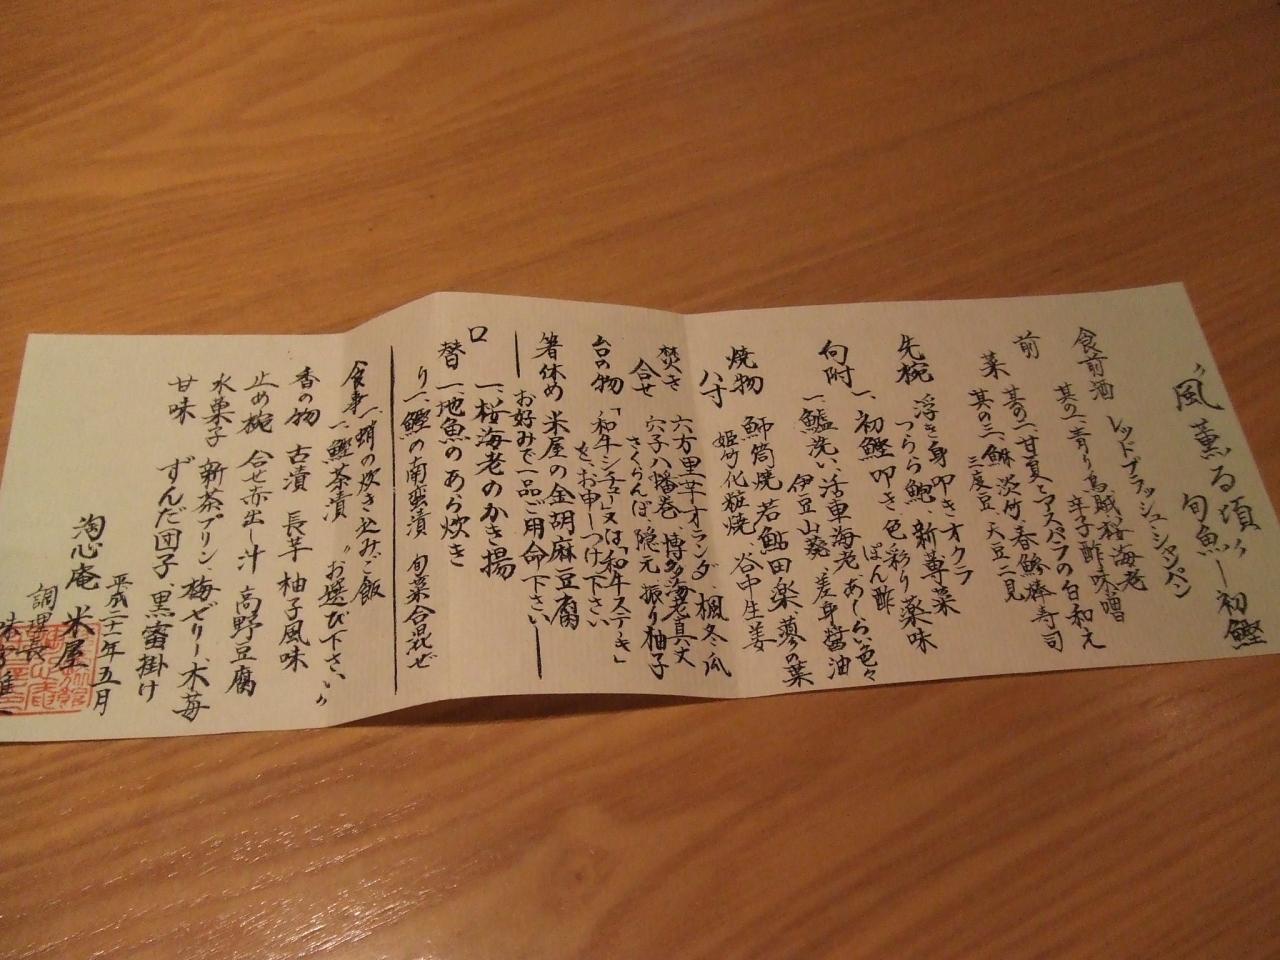 〝風薫る頃〟
旬魚ー初鰹
食前酒 レッドブラッシュシャンパン
前菜 其の一、青り烏賊桜海老
辛子酢味噌
其の二、甘夏とアスパラの白和え
其の三、鮴 淡竹 春鯵棒寿司
三度豆 天豆二見
先椀 浮き身叩きオクラ
つらら鮑、新蓴菜
向附 一、初鰹叩き 色彩り薬味
ぽん酢
一、鱸洗い、活車海老 あしらい色々
伊豆山葵 差身醤油
焼物 鰤筒焼 若鮎田楽 蓼の葉
八寸 姫竹化粧焼 谷中生姜
焚き合せ 六方里芋オランダ 楓冬瓜
穴子八幡巻、博多海老真丈
さくらんぼ 隠元 振り柚子
台の物 「和牛シチュー」又は「和牛ステーキ」
を、お申しつけ下さい
箸休め 米屋の金胡麻豆腐
お好みで一品ご用命下さい
口替り 一、桜海老のかき揚
一、地魚のあら炊き
一、鰹の南蛮漬 旬菜合混ぜ
食事 一、蛸の炊き込みご飯
一、鰹茶漬 〝お選び下さい〟
香の物 古漬 長芋 柚子風味
止め椀 合せ赤出し汁 高野豆腐
水菓子 新茶プリン、梅ゼリー、木苺
甘味 ずんだ団子、黒蜜掛け
淘心庵 米屋
平成二十一年五月
調理長